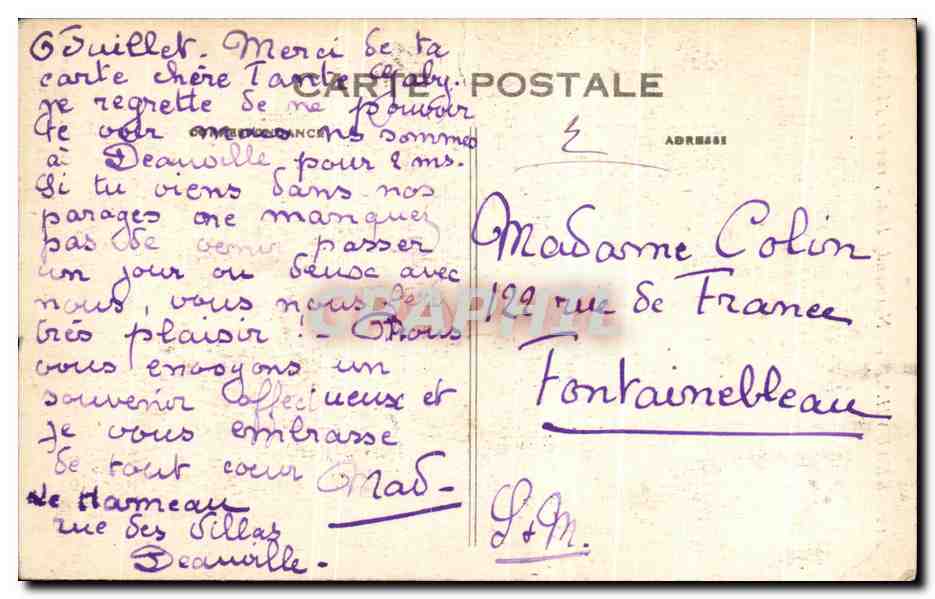 6 Juillet. Merci de ta
carte chère Tante Gaby.
CARTE POSTALE
je regrette de ne pouvoir
te voir mais ns sommes
CORRESPONDANCE
ADRESSE
à Deauville pour 2 ms.
Si tu viens dans nos
parages ne manquez
pas de venir passer
un jour ou deux avec
nous, vous nous
très plaisir ! - Nous
vous envoyons un
souvenir affectueux et
je vous embrasse
de tout coeur Mad -
Le Hameau
rue des Villas
Deauville -
Madame Colin
122 rue de France
Fontainebleau
S + M.
CPAPHIL